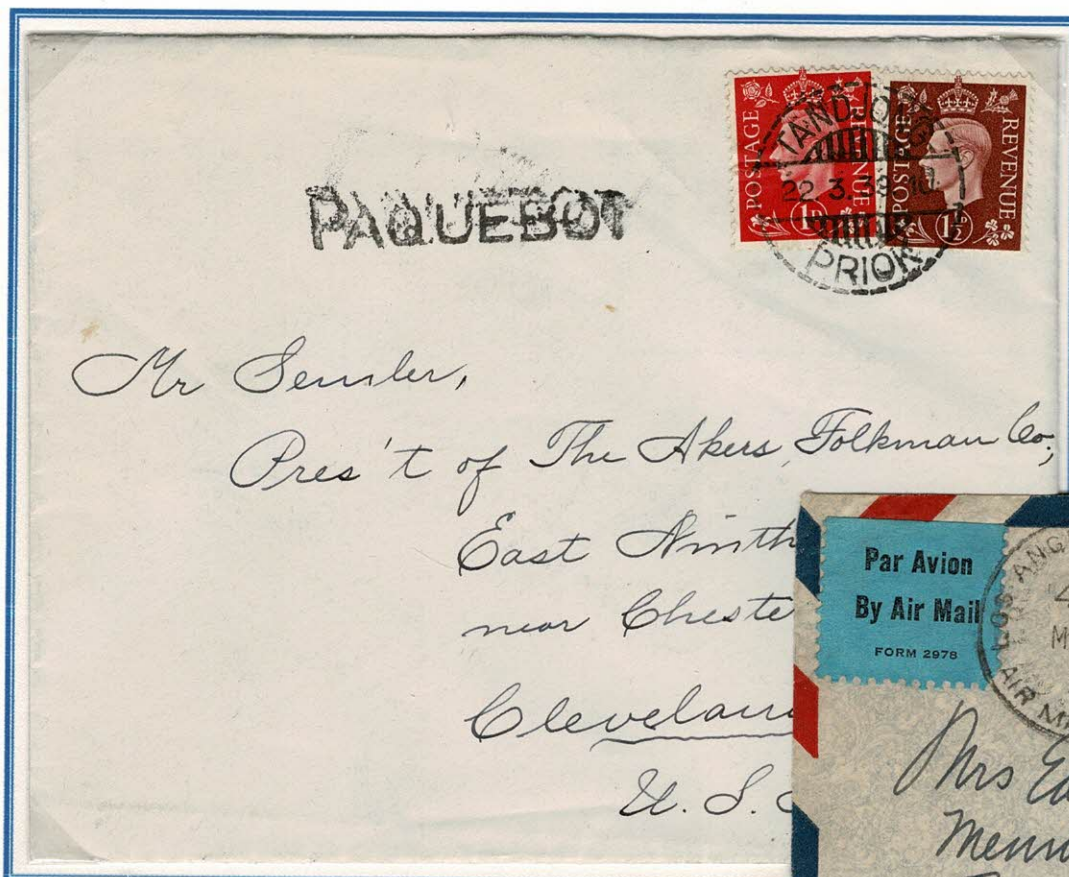 POSTAGE REVENUE
1D
POSTAGE REVENUE
1½D
TANDJONG
22.3.39.10
PRIOK
PAQUEBOT
Mr Semler,
Pres't of The Akers, Folkman Co,
East Ninth
near Cheste
Cleveland
U. S.
Par Avion
By Air Mail
FORM 2978
LOS ANG
AIR M
Mrs Ed